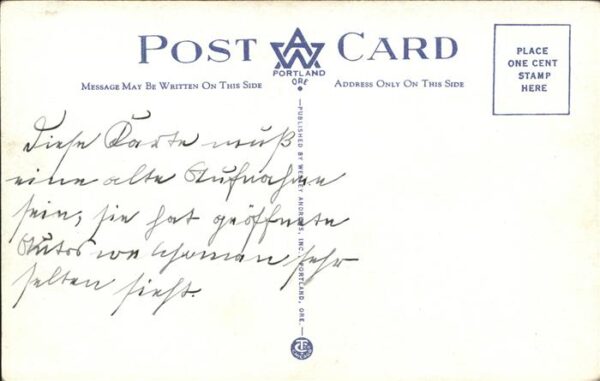 POST CARD
AW
PORTLAND
ORE
MESSAGE MAY BE WRITTEN ON THIS SIDE
ADDRESS ONLY ON THIS SIDE
PLACE
ONE CENT
STAMP
HERE
Diese Karte muß
eine alte Aufnahme
sein, sie hat geöffnete
Autos man sehr
selten sieht.
PUBLISHED BY WESLEY ANDREWS, INC. PORTLAND, ORE.